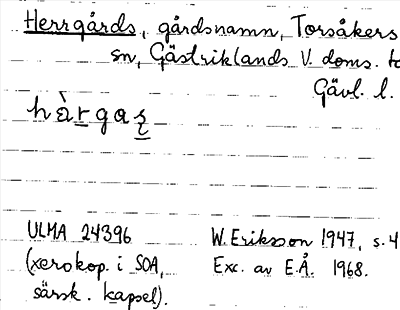 Herrgårds, gårdsnamn, Torsåkers
sn, Gästriklands V. doms.
Gävl. l.
hàrgas
ULMA 24396
(xerokop. i SOA,
särsk. kapsel).
W. Eriksson 1947, s. 4
Exc. av E.Å. 1968.